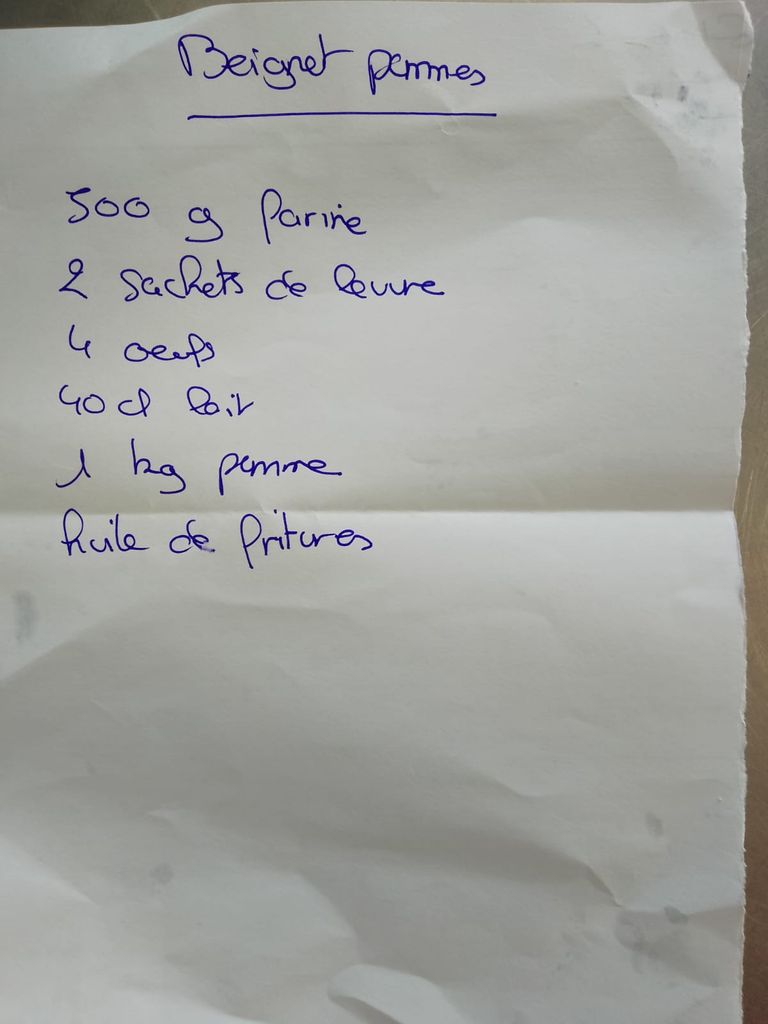 Beignet pommes
500 g farine
2 sachets de levure
4 oeufs
40 cl lait
1 kg pomme
huile de fritures